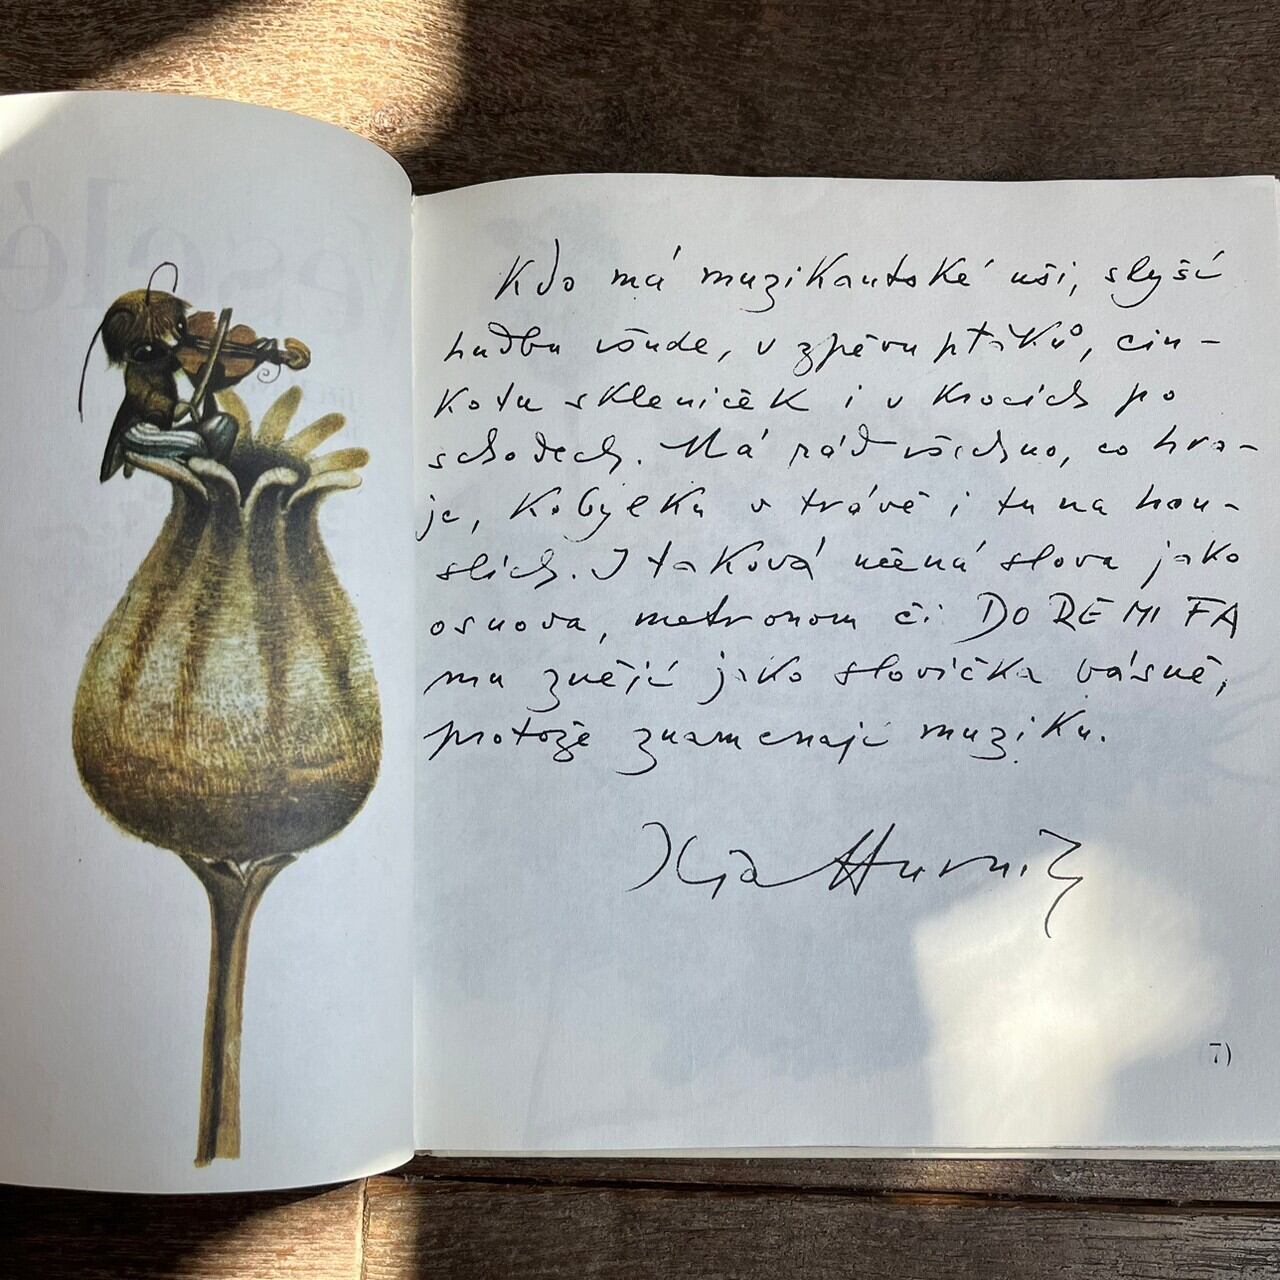 Veselé
Kdo má muzikantské uši, slyší
hudbu všude, v zpěvu ptáků, cin-
kotu skleniček i v krocích po
schodech. Má rád všechno, co hra-
je, kobylku v trávě i tu na hou-
slích. I taková učená slova jako
osnova, metronom či DO RE MI FA
mu znějí jako slovíčka básně,
protože znamenají muziku.
Ilja Hurník
7)